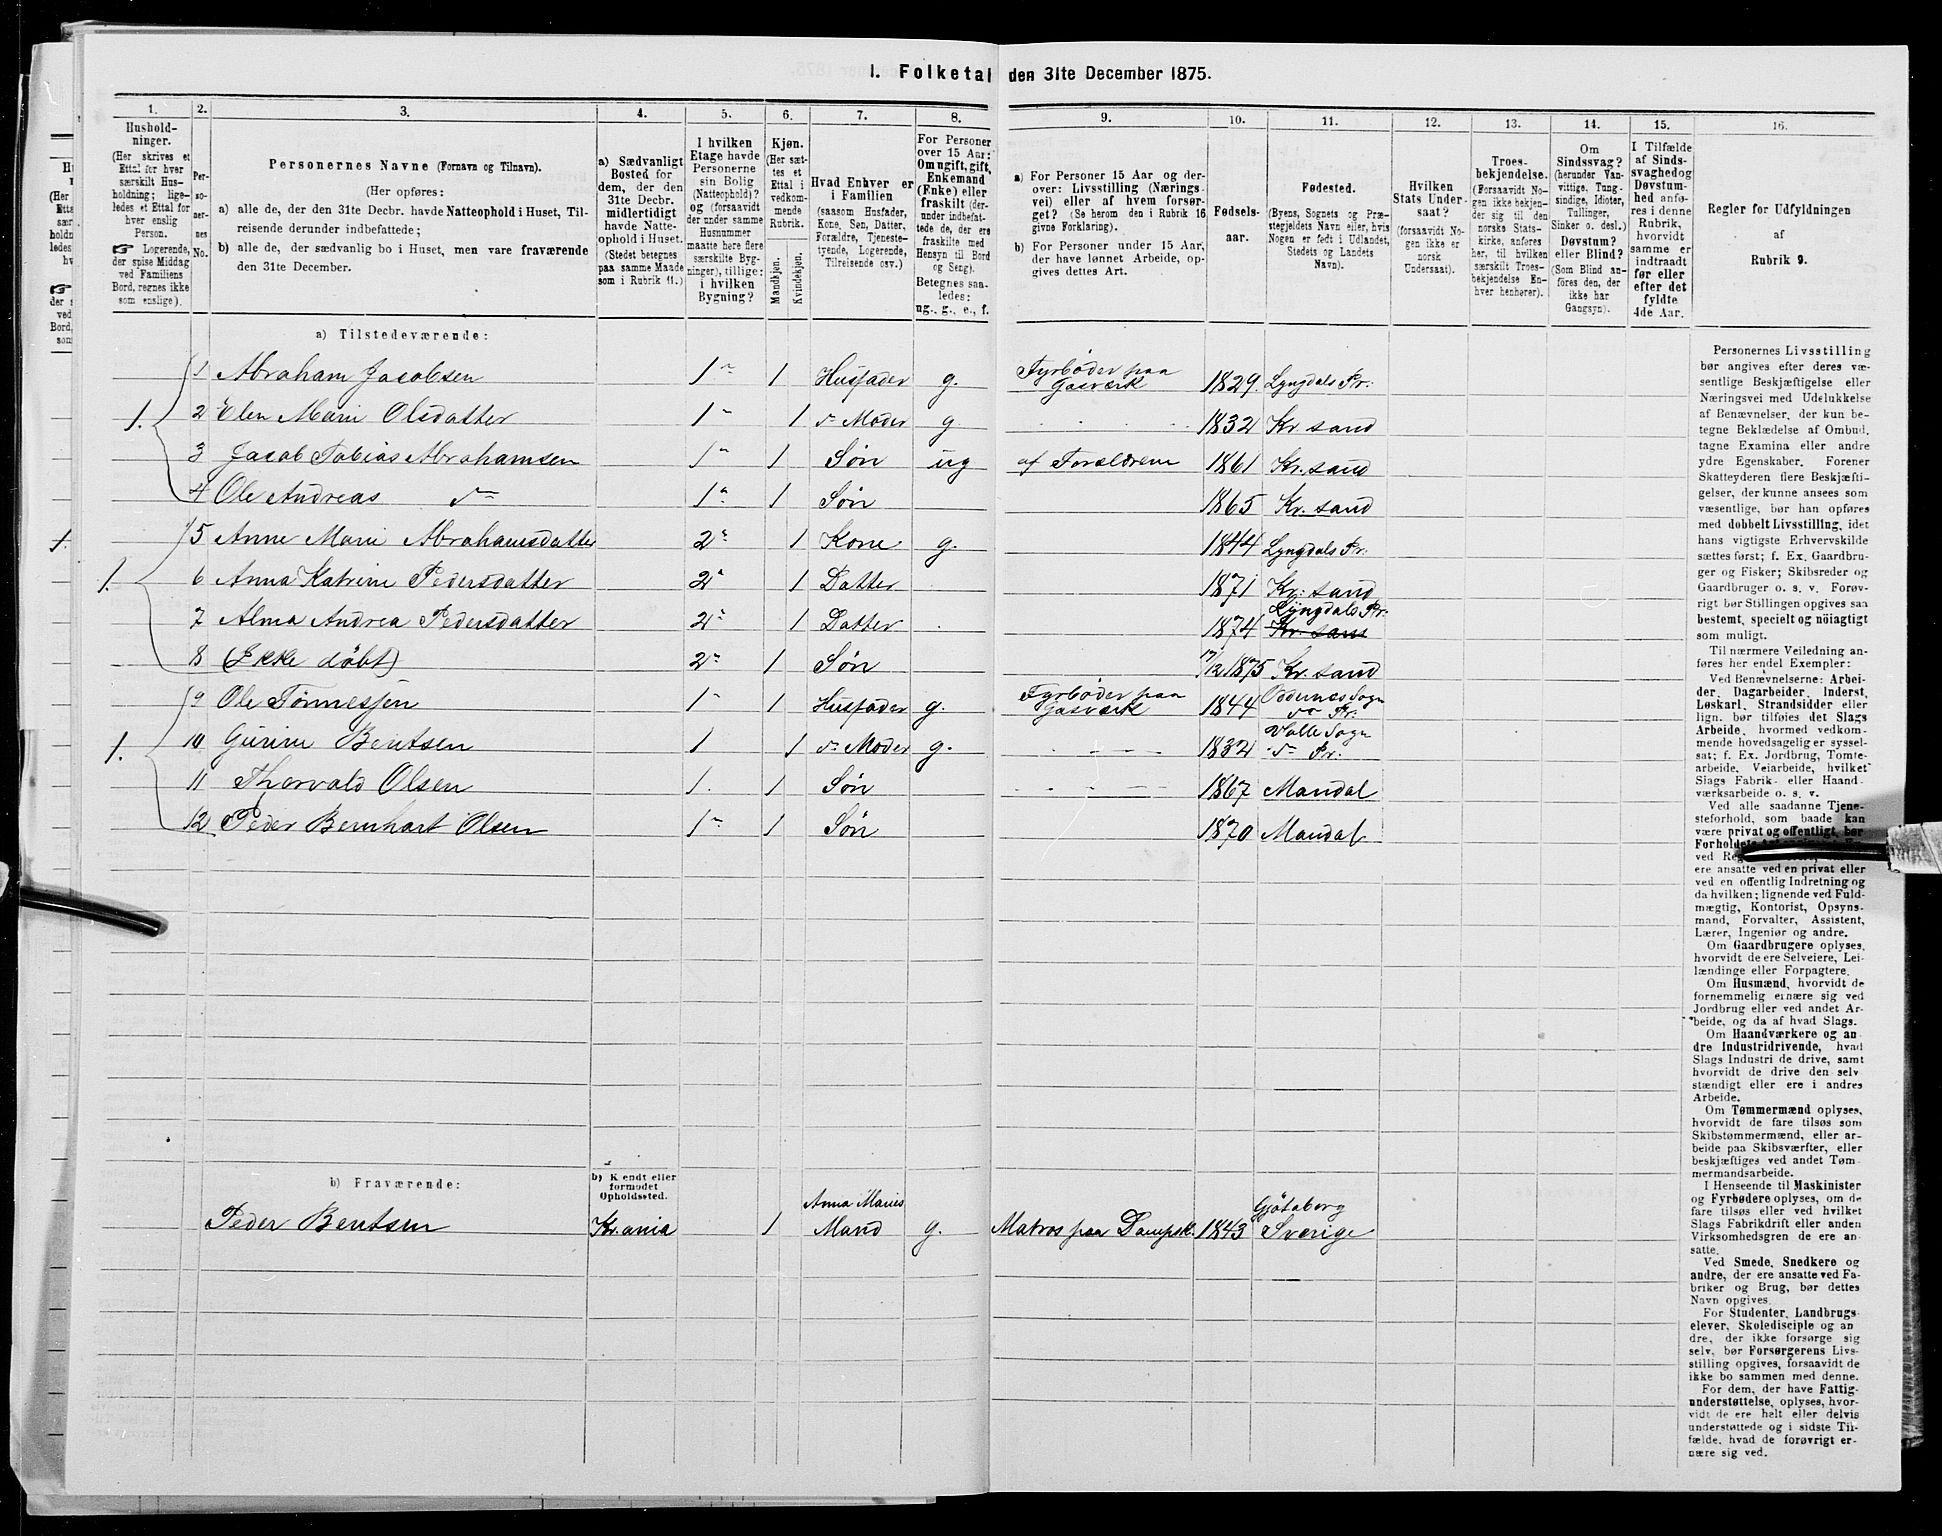 1. Folketal den 31te December 1875.
1. 2. 3. 4. 5. 6. 7. 8. 9. 10. 11. 12. 13. 14. 15. 16.
Hushold-
ninger.
(Her skrives et
Ettal for hver
særskilt Hus-
holdning; lige-
ledes et Ettal for
hver enslig
Person.
☞ Logerende,
der spise Middag
ved Familiens
Bord, regnes ikke
som enslige).
Per-
so-
ner-
nes
No.
Personernes Navne (Fornavn og Tilnavn).
(Her opføres:
a) alle de, der den 31te Decbr. havde Natteophold i Huset, Til-
reisende derunder indbefattede;
b) alle de, der sædvanlig bo i Huset, men vare fraværende
den 31te December.
a) Sædvanligt
Bosted for
dem, der den
31te Decbr.
midlertidigt
havde Natte-
ophold i Huset.
(Stedet betegnes
paa samme Maade
som i Rubrik 11.)
I hvilken
Etage havde
Personerne
sin Bolig
(Natteophold)?
og (forsaavidt
der under samme
Husnummer
maatte høre flere
særskilte Byg-
ninger), tillige:
i hvilken
Bygning?
Kjøn.
(Her sæt-
tes et
Ettal i
vedkom-
mende
Rubrik.
Mandkjøn.
Kvindekjøn.
Hvad Enhver er
i Familien
(saasom Husfader,
Kone, Søn, Datter,
Forældre, Tjeneste-
tyende, Logerende,
Tilreisende osv.)
For Personer
over 15 Aar:
Om ugift, gift,
Enkemand
(Enke) eller
fraskilt (der-
under indbefat-
tede de, der ere
fraskilte med
Hensyn til Bord
og Seng).
Betegnes saa-
ledes:
ug., g., e., f.
a) For Personer 15 Aar og der-
over: Livsstilling (Nærings-
vei) eller af hvem forsør-
get? (Se herom den i Rubrik 16
givne Forklaring).
b) For Personer under 15 Aar,
der have lønnet Arbeide, op-
gives dettes Art.
Fødsels-
aar.
Fødested.
(Byens, Sognets og Præ-
stegjeldets Navn eller, hvis
Nogen er født i Udlandet,
Stedets og Landets
Navn).
Hvilken
Stats Under-
saat?
(forsaavidt No-
gen ikke er
norsk
Undersaat).
Troes-
bekjendelse.
(Forsaavidt No-
gen ikke bekjen-
der sig til den
norske Stats-
kirke, anføres
her, til hvilken
særskilt Troes-
bekjendelse En-
hver henhører).
Om
Sindssvag?
(herunder Van-
vittige, Tung-
sindige, Idioter,
Tullinger,
Sinker o. desl.)
Døvstum?
eller Blind?
(Som Blind an-
føres den, der
ikke har
Gangsyn).
I Tilfælde
af Sinds-
svaghed og
Døvstum-
hed anfø-
res i denne
Rubrik,
hvorvidt
samme er
indtraadt
før eller
efter det
fyldte
4de Aar.
Regler for Udfyldningen
af
Rubrik 9.
a) Tilstedeværende:
1 Abraham Jacobsen 1 1 Husfader g. Fyrböder paa Gasværk 1829. Lyngdals Pr.
1. 2 Elen Marie Olsdatter 1 1 Moder g 1832 Kr. sand
3 Jacob Tobias Abrahamsen 1 1 Søn ug af Forældrene 1861 Kr. sand
4 Ole Andreas d° 1 1 Søn 1865 Kr. sand
5 Anne Marie Abrahamsdatter 2 1 Kone g. 1844 Lyngdals Pr.
1. 6 Anna Katrine Pedersdatter 2 1 Datter 1871 Kr. sand
7 Alma Andrea Pedersdatter 2 1 Datter 1874 Lyngdals Pr. Kr. sand
8 (Ikke döbt) 2 1 Søn 17/12 1875 Kr. sand
9 Ole Tönnessen 1 1 Husfader g. Fyrböder paa Gasværk 1844 Oddernes Sogn d° Pr.
1. 10 Gurine Bentsen 1 1 Moder g. 1832 Valle Sogn d° Pr.
11 Thorvald Olsen 1. 1 Søn 1867 Mandal
12 Peder Bernhart Olsen 1 1 Søn 1870 Mandal
b) Fraværende:
b) Kendt eller
formodet
Opholdssted.
Anna Maries Götaborg
Peder Bentsen Kr.ania 1 Mand g. Matros paa Dampsk. 1843 Sverige
Personernes Livsstilling
bør angives efter deres væ-
sentlige Beskjæftigelse eller
Næringsvei med Udelukkelse
af Benævnelser, der kun be-
tegne Beklædelse af Ombud,
tagne Examina eller andre
ydre Egenskaber. Forener
Skatteyderen flere Beskjæfti-
gelser, der kunne ansees som
væsentlige, bør han opføres
med dobbelt Livsstilling, idet
hans vigtigste Erhvervskilde
sættes først; f. Ex. Gaardbru-
ger og Fisker; Skibsreder og
Gaardbruger o. s. v. Forøv-
rigt bør Stillingen opgives saa
bestemt, specielt og nöiagtigt
som muligt.
Til nærmere Veiledning an-
føres her endel Exempler:
Ved Benævnelserne: Arbei-
der, Dagarbeider, Inderst,
Løskarl, Strandsidder eller
lign. bør tilføies det Slags
Arbeide, hvormed vedkom-
mende hovedsagelig er syssel-
sat; f. Ex. Jordbrug, Tomte-
arbeide, Veiarbeide, hvilket
Slags Fabrik- eller Haand-
værksarbeide o. s. v.
Ved alle saadanne Tjene-
steforhold, som baade kan
være privat og offentligt, bør
Forholdets
ved
ere ansatte ved en privat eller
ved en offentlig Indretning og
da hvilken; lignende ved Fuld-
mægtig, Kontorist, Opsyns-
mand, Forvalter, Assistent,
Lærer, Ingeniør og andre.
Om Gaardbrugere oplyses,
hvorvidt de ere Selveiere, Lei-
lændinge eller Forpagtere.
Om Husmænd, hvorvidt de
fornemmelig ernære sig ved
Jordbrug eller ved andet Ar-
beide, og da af hvad Slags.
Om Haandværkere og an-
dre Industridrivende, hvad
Slags Industri de drive, samt
hvorvidt de drive den selv
stændigt eller ere i andres
Arbeide.
Om Tømmermænd oplyses,
hvorvidt de fare tilsøs som
Skibstømmermænd, eller ar-
beide paa Skibsværfter, eller
beskjæftiges ved andet Tøm-
mermandsarbeide.
I Henseende til Maskinister
og Fyrbødere oplyses, om de
fare tilsøs eller ved hvilket
Slags Fabrikdrift eller anden
Virksomhedsgren de ere an-
satte.
Ved Smede, Snedkere og
andre, der ere ansatte ved Fa-
briker og Brug, bør dettes
Navn opgives.
For Studenter, Landbrugs-
elever, Skoledisciple og an
dre, der ikke forsørge sig
selv, bør Forsørgerens Livs-
stilling opgives, forsaavidt de
ikke bo sammen med denne.
For dem, der have Fattig-
understøttelse, oplyses, hvor-
vidt de ere helt eller delvis
understøttede og i sidste Til-
fælde, hvad de forøvrigt er-
nære sig ved.